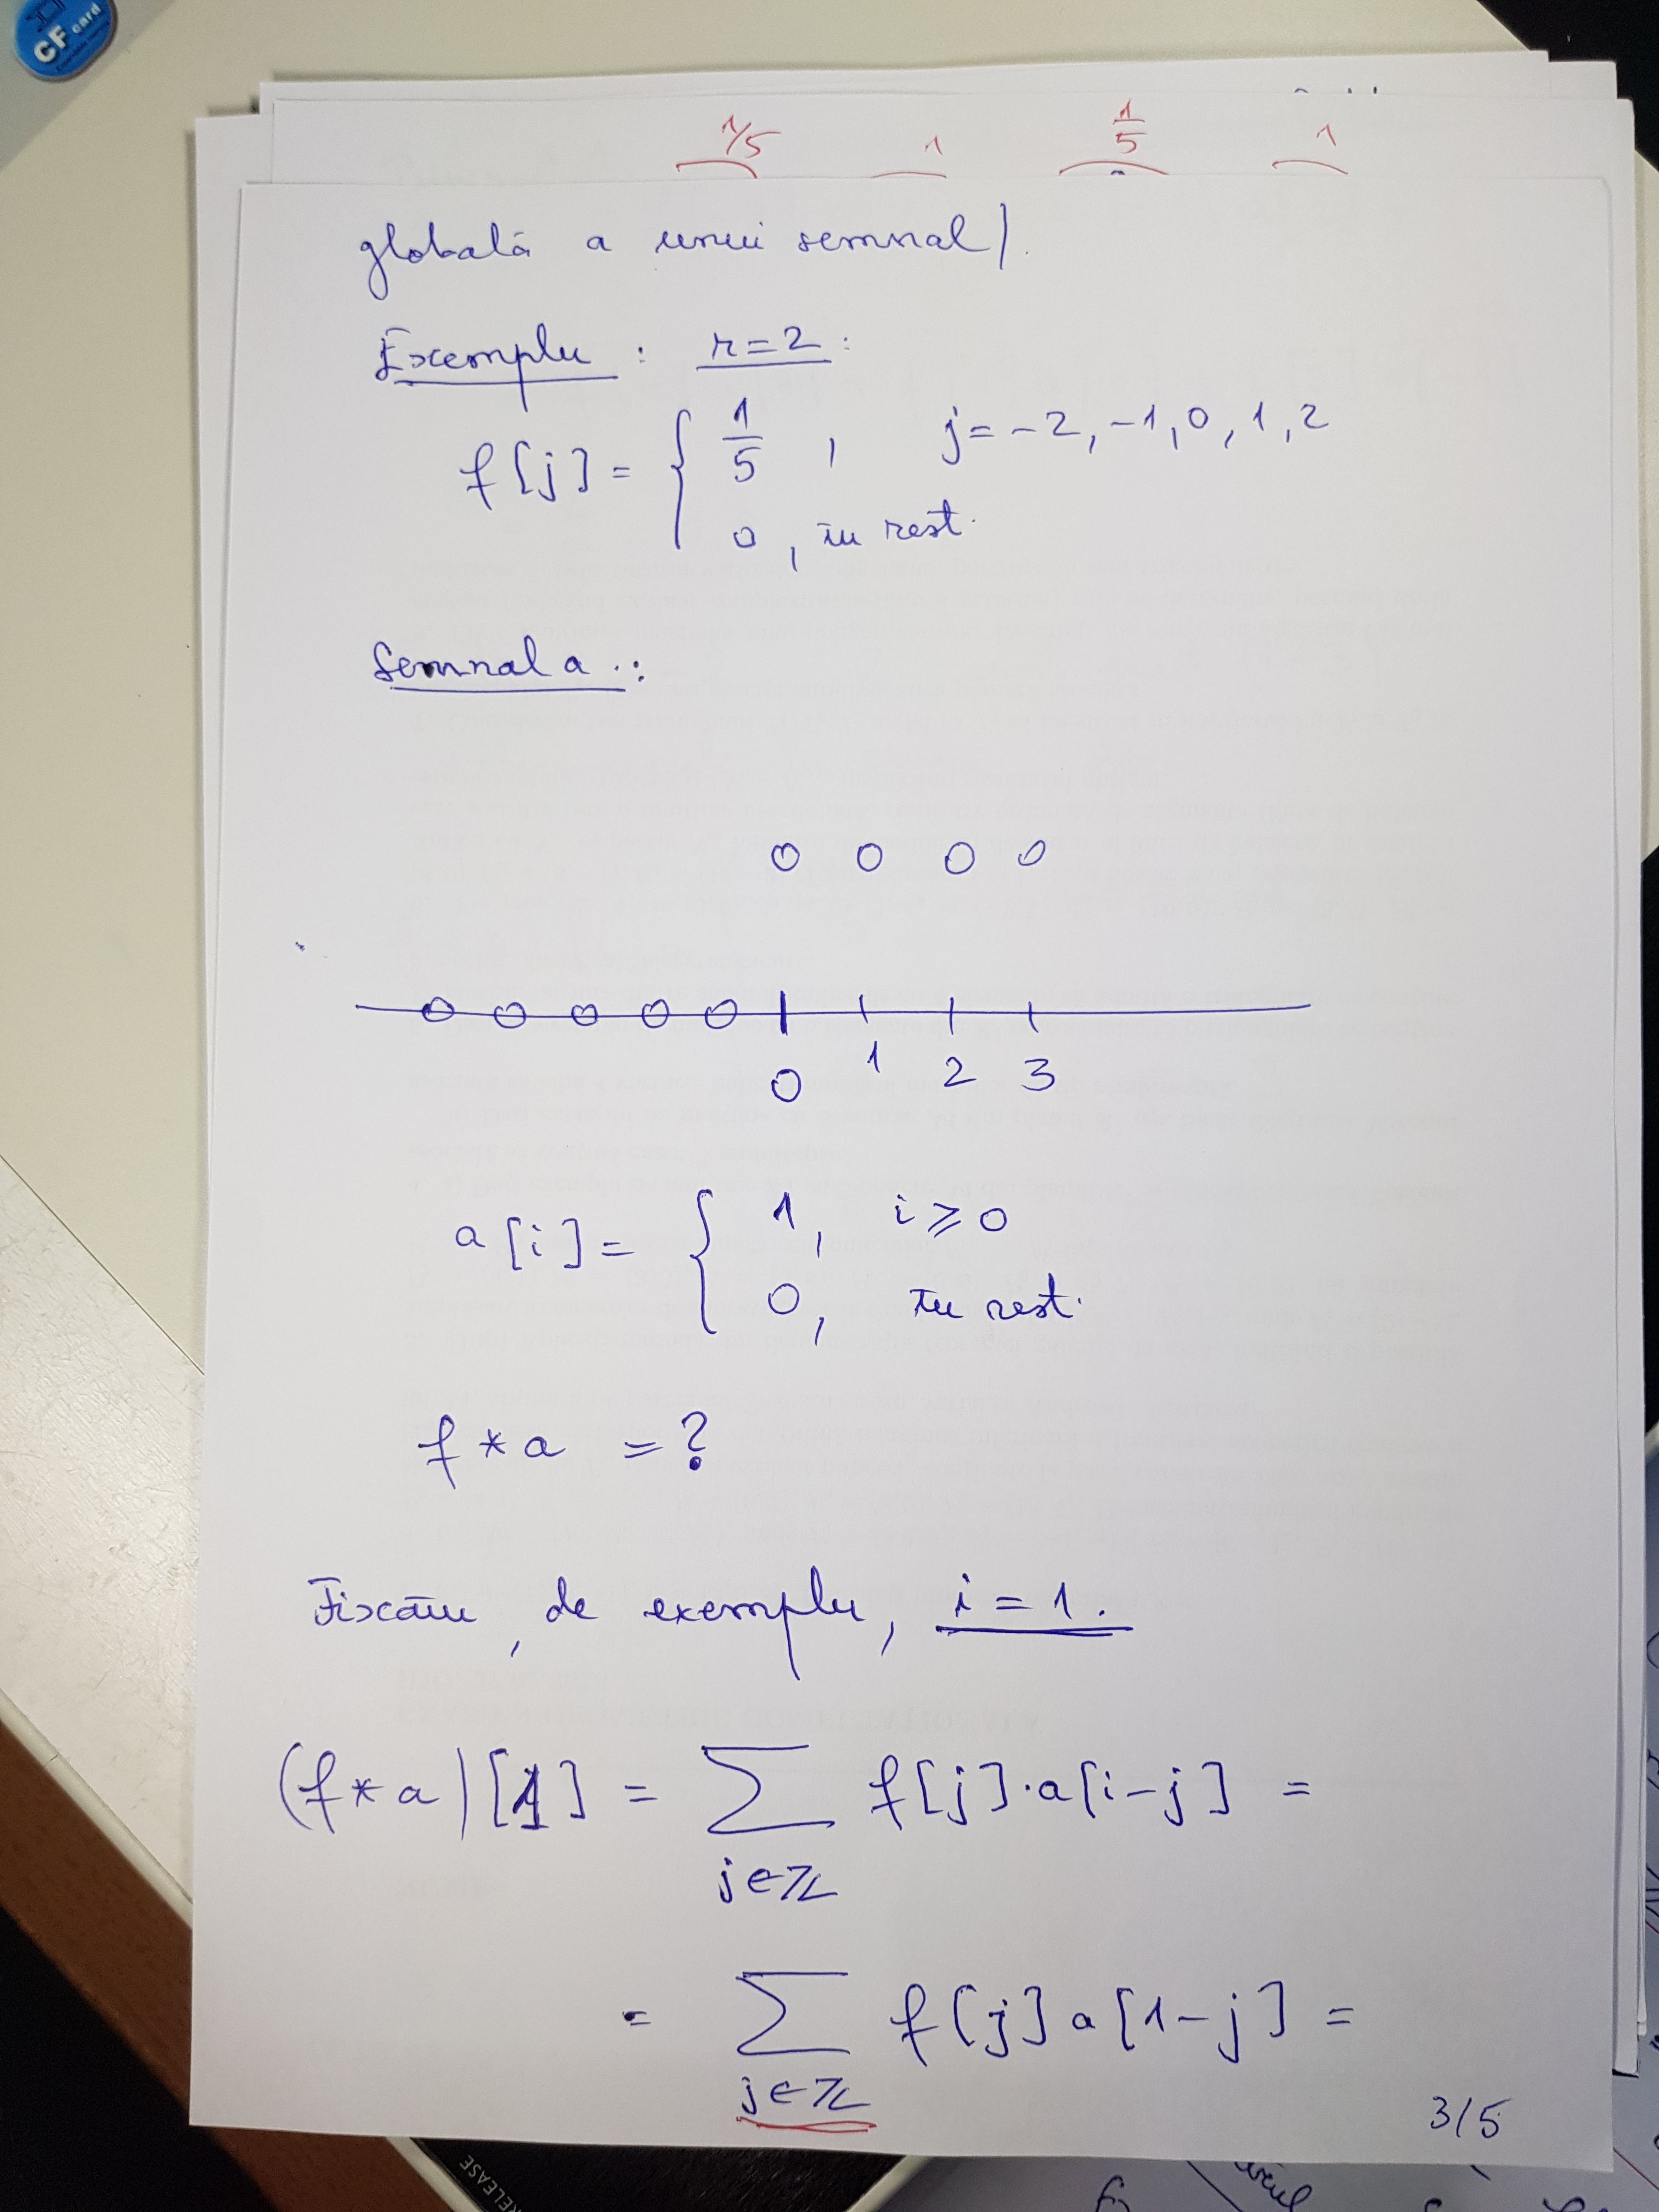 CF card
1/5 1 1/5 1
globală a unui semnal).
Exemplu : r=2 :
f[j] = { 1/5 , j = -2, -1, 0, 1, 2
0 , în rest.
Semnal a :
0 1 2 3
a[i] = { 1, i ⩾ 0
0, în rest.
f * a = ?
Fixăm, de exemplu, i = 1.
(f * a)[1] = ∑ f[j]·a[i-j] =
j∈ℤ
= ∑ f[j] a[1-j] =
j∈ℤ
3/5
RELEASE